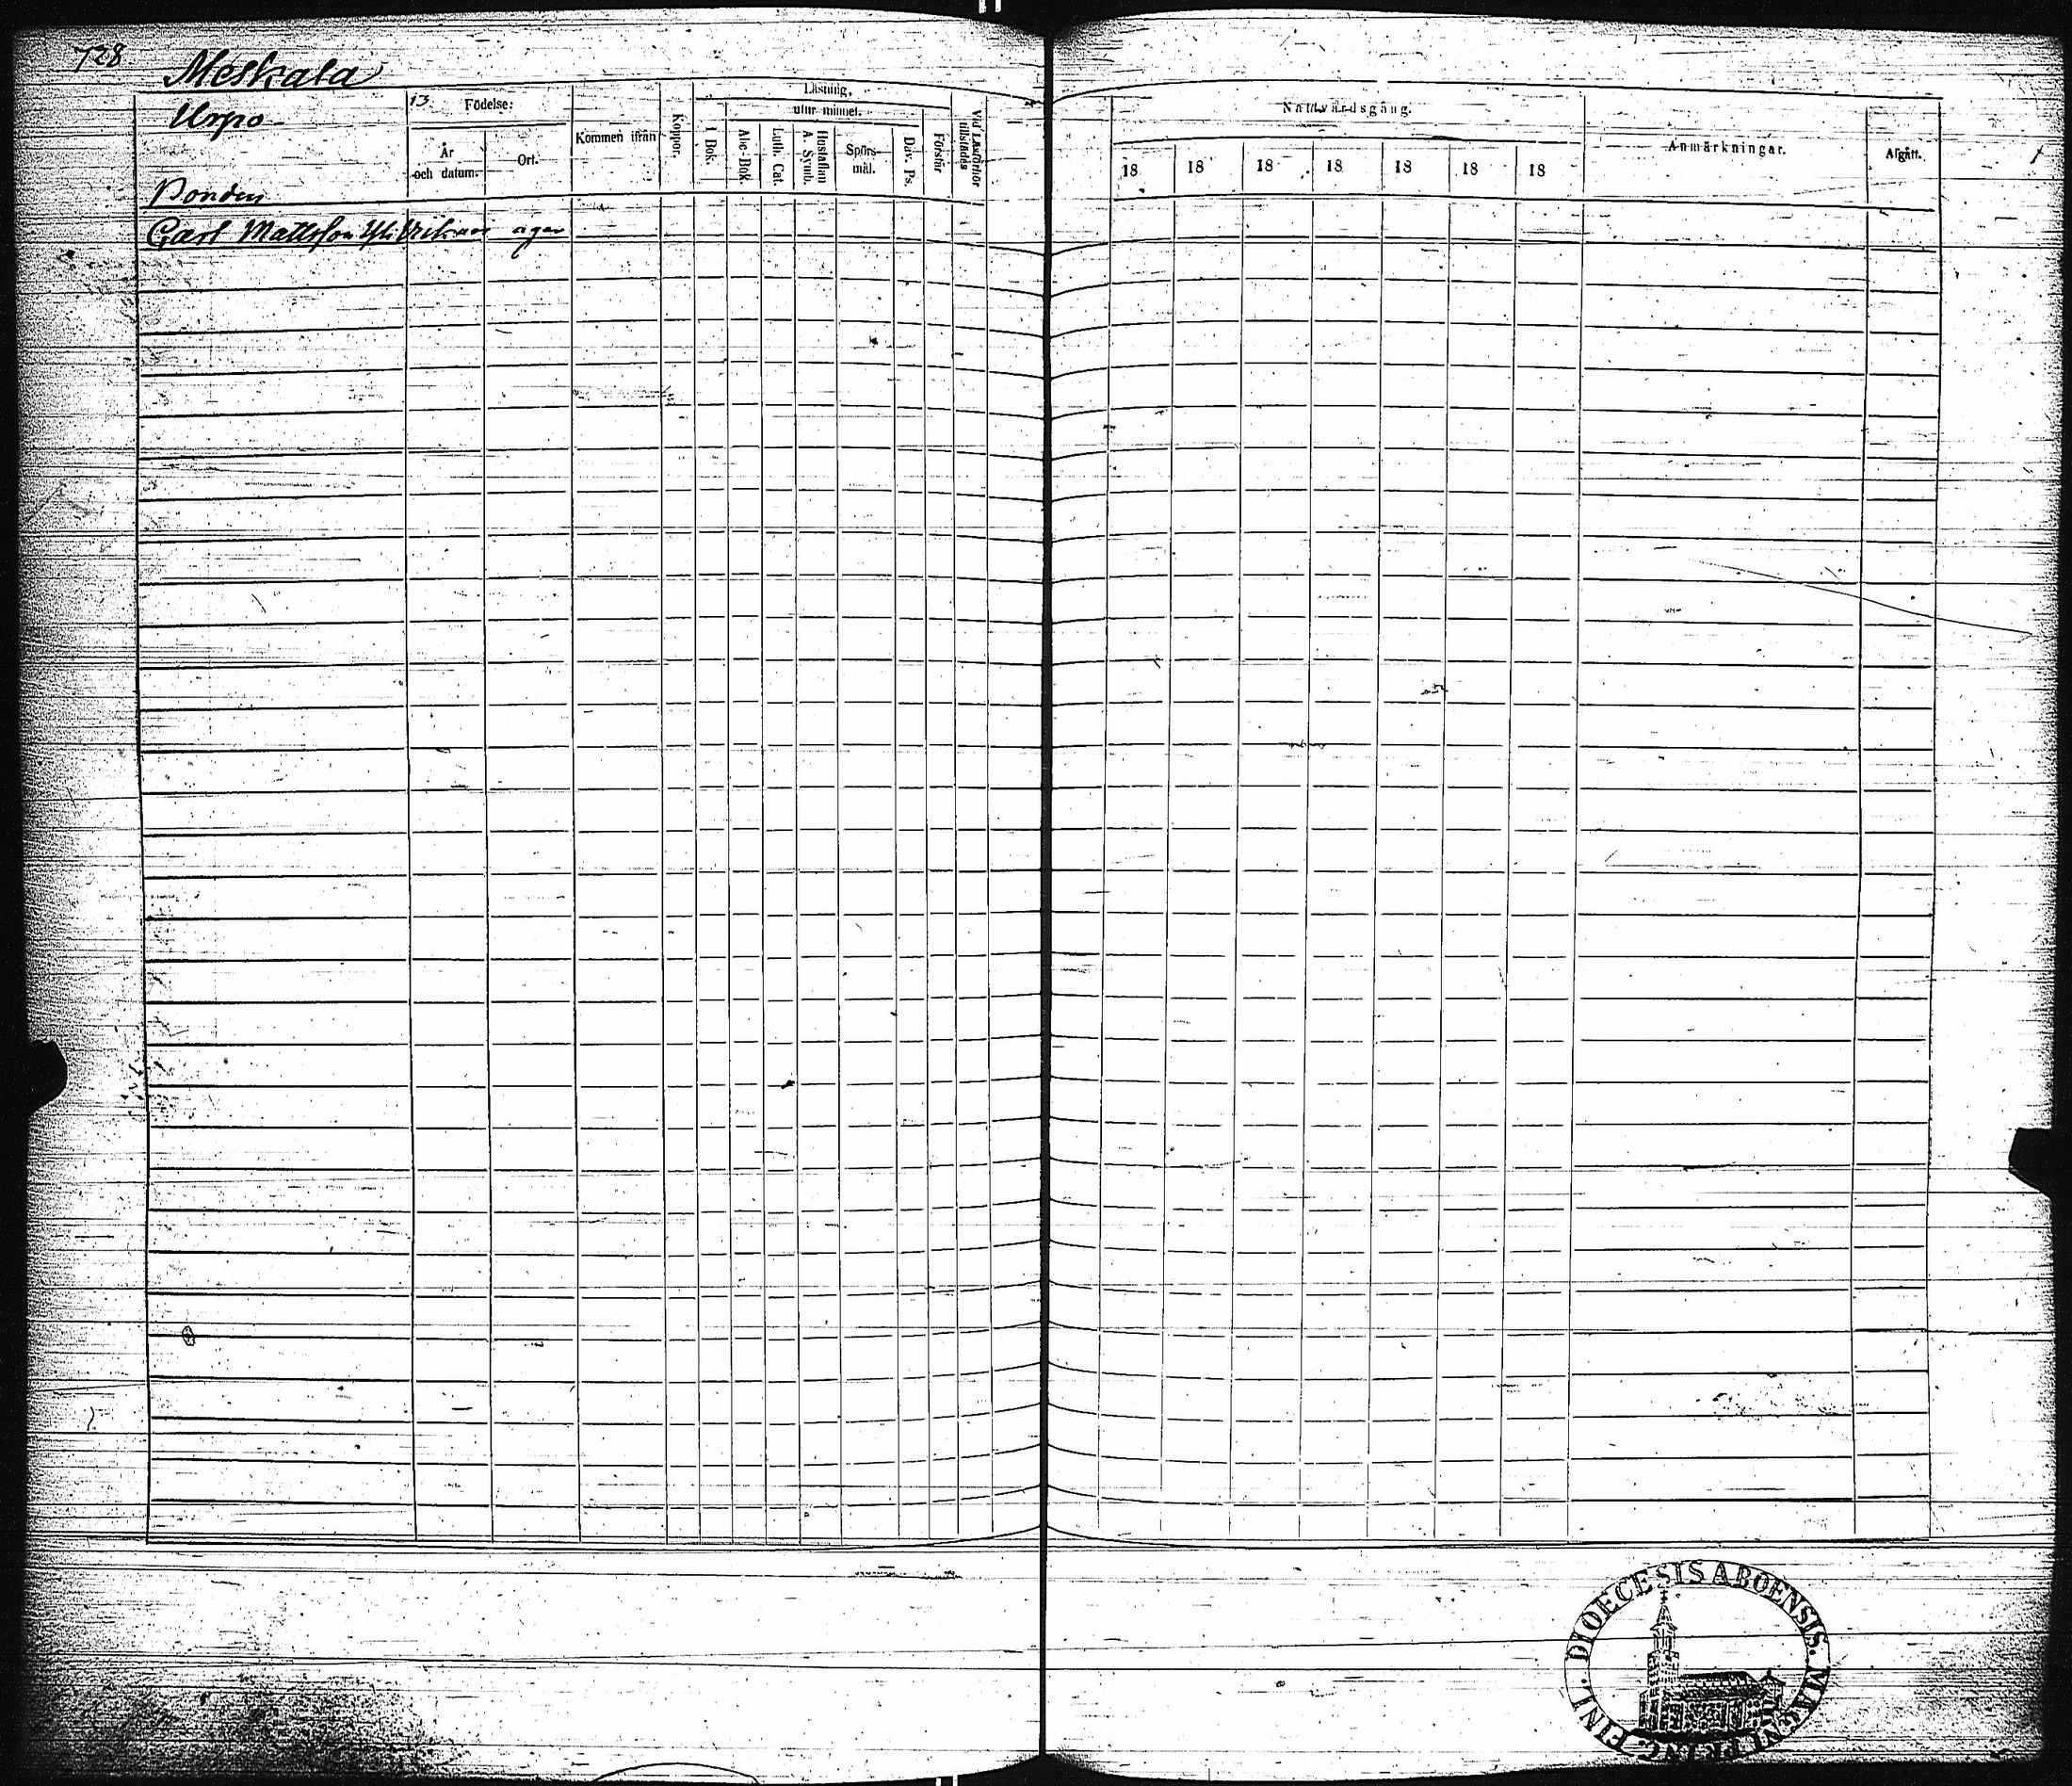 728
Meskala
Urpo
13
Födelse:
År och datum.
Ort.
Kommen ifrån
Koppor.
Läsning,
utur minnet.
I Bok.
Abc-Bok.
Luth. Cat.
Hustaflan A. Symb.
Spörsmål.
Dav. Ps.
Förstår
Vid Läsförhör tillstädes
Nattvardsgång.
18 18 18 18 18 18 18
Anmärkningar.
Afgått.
Bonden
Carl Mattsson Yli Erikas äger
DIOECESIS ABOENSIS. MAGNI PRINC. FINL.